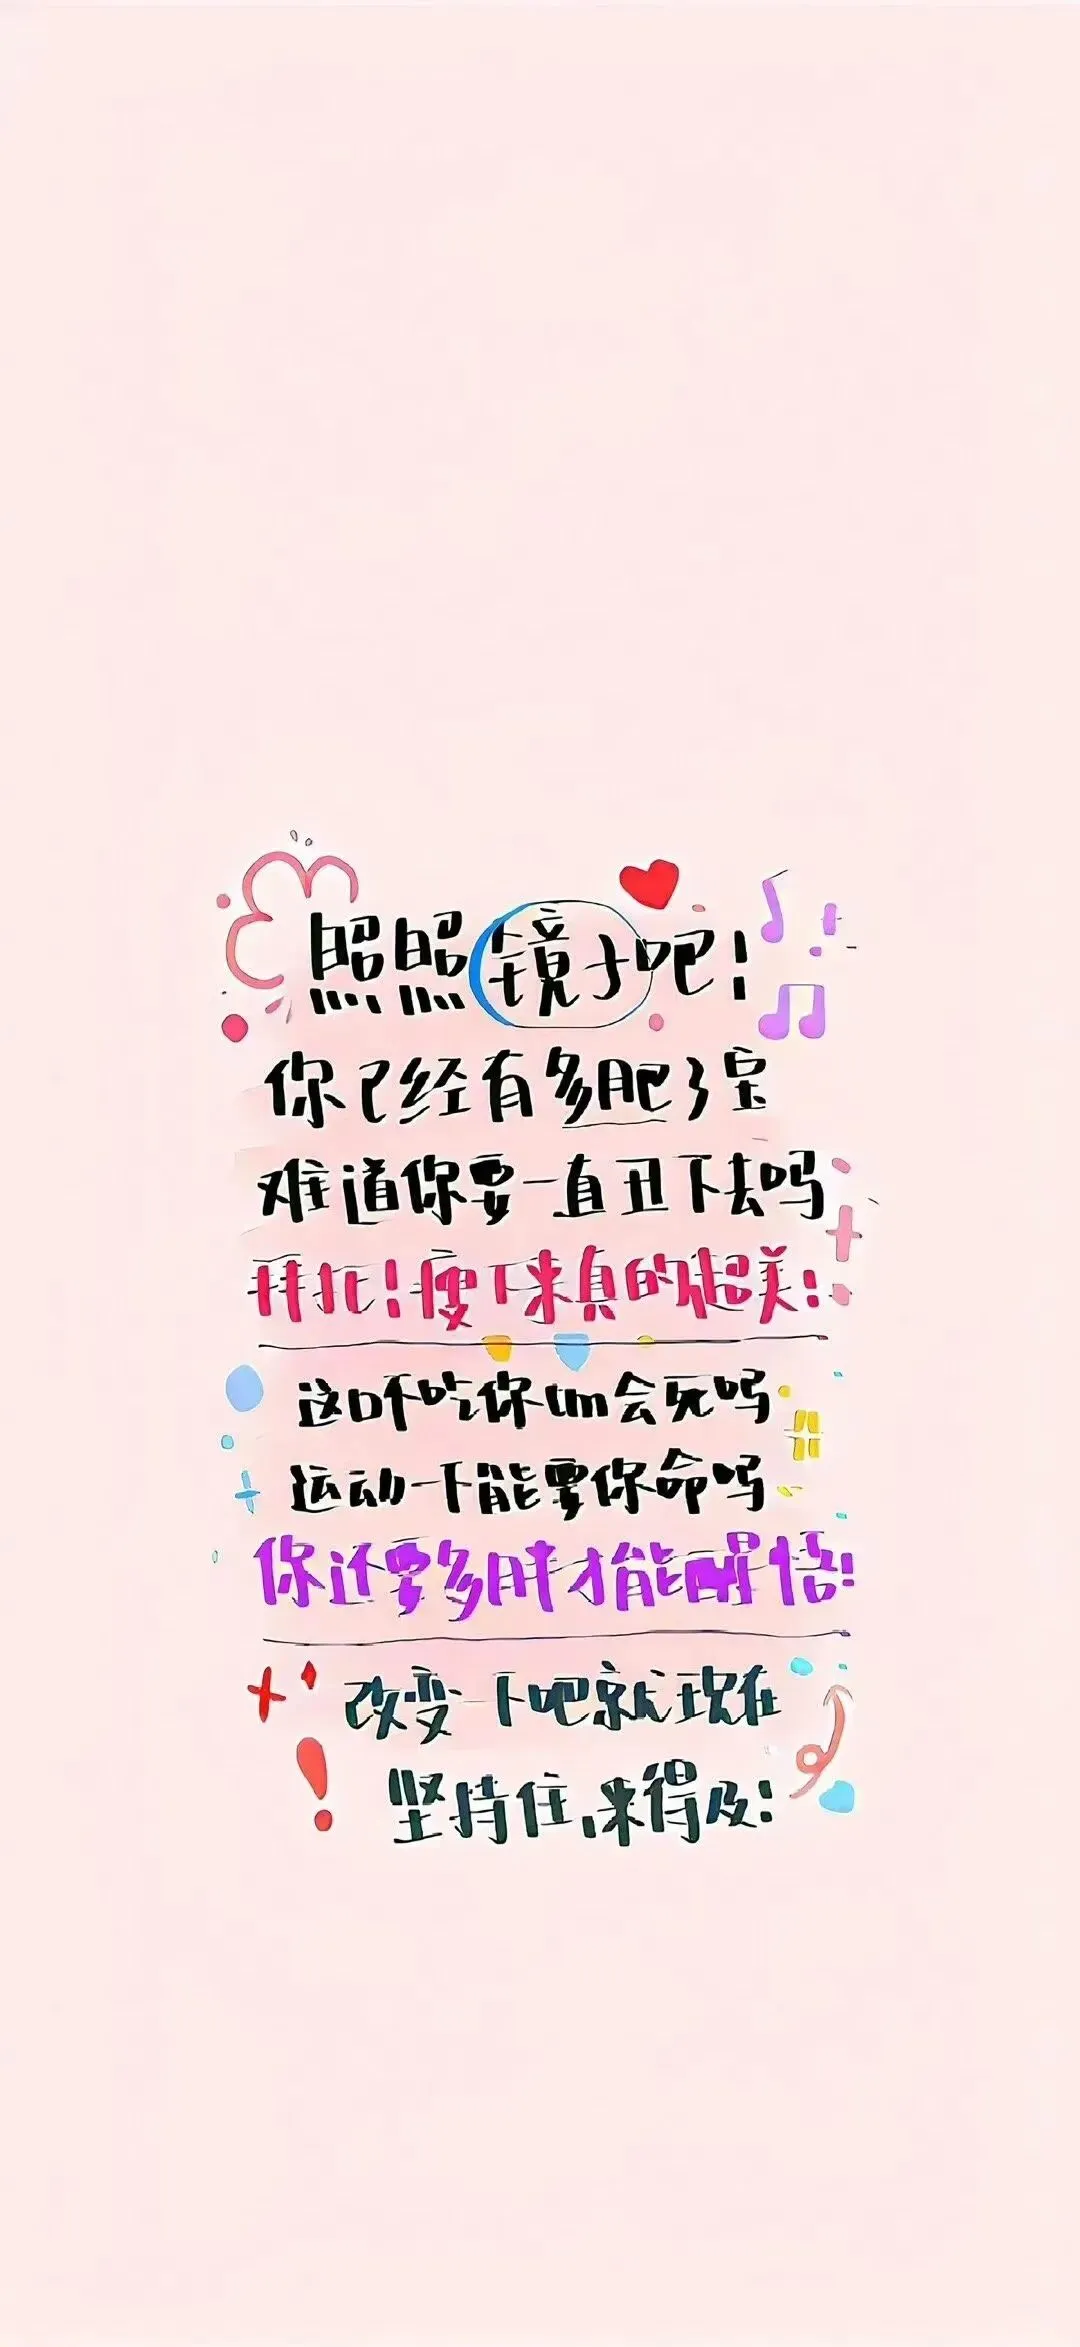 照照镜子吧!
你已经有多肥了宝
难道你要一直丑下去吗
拜托!瘦下来真的超美!
这口不吃你tm会死吗
运动一下能要你命吗
你还要多胖才能醒悟!
改变一下吧就现在
坚持住,来得及!